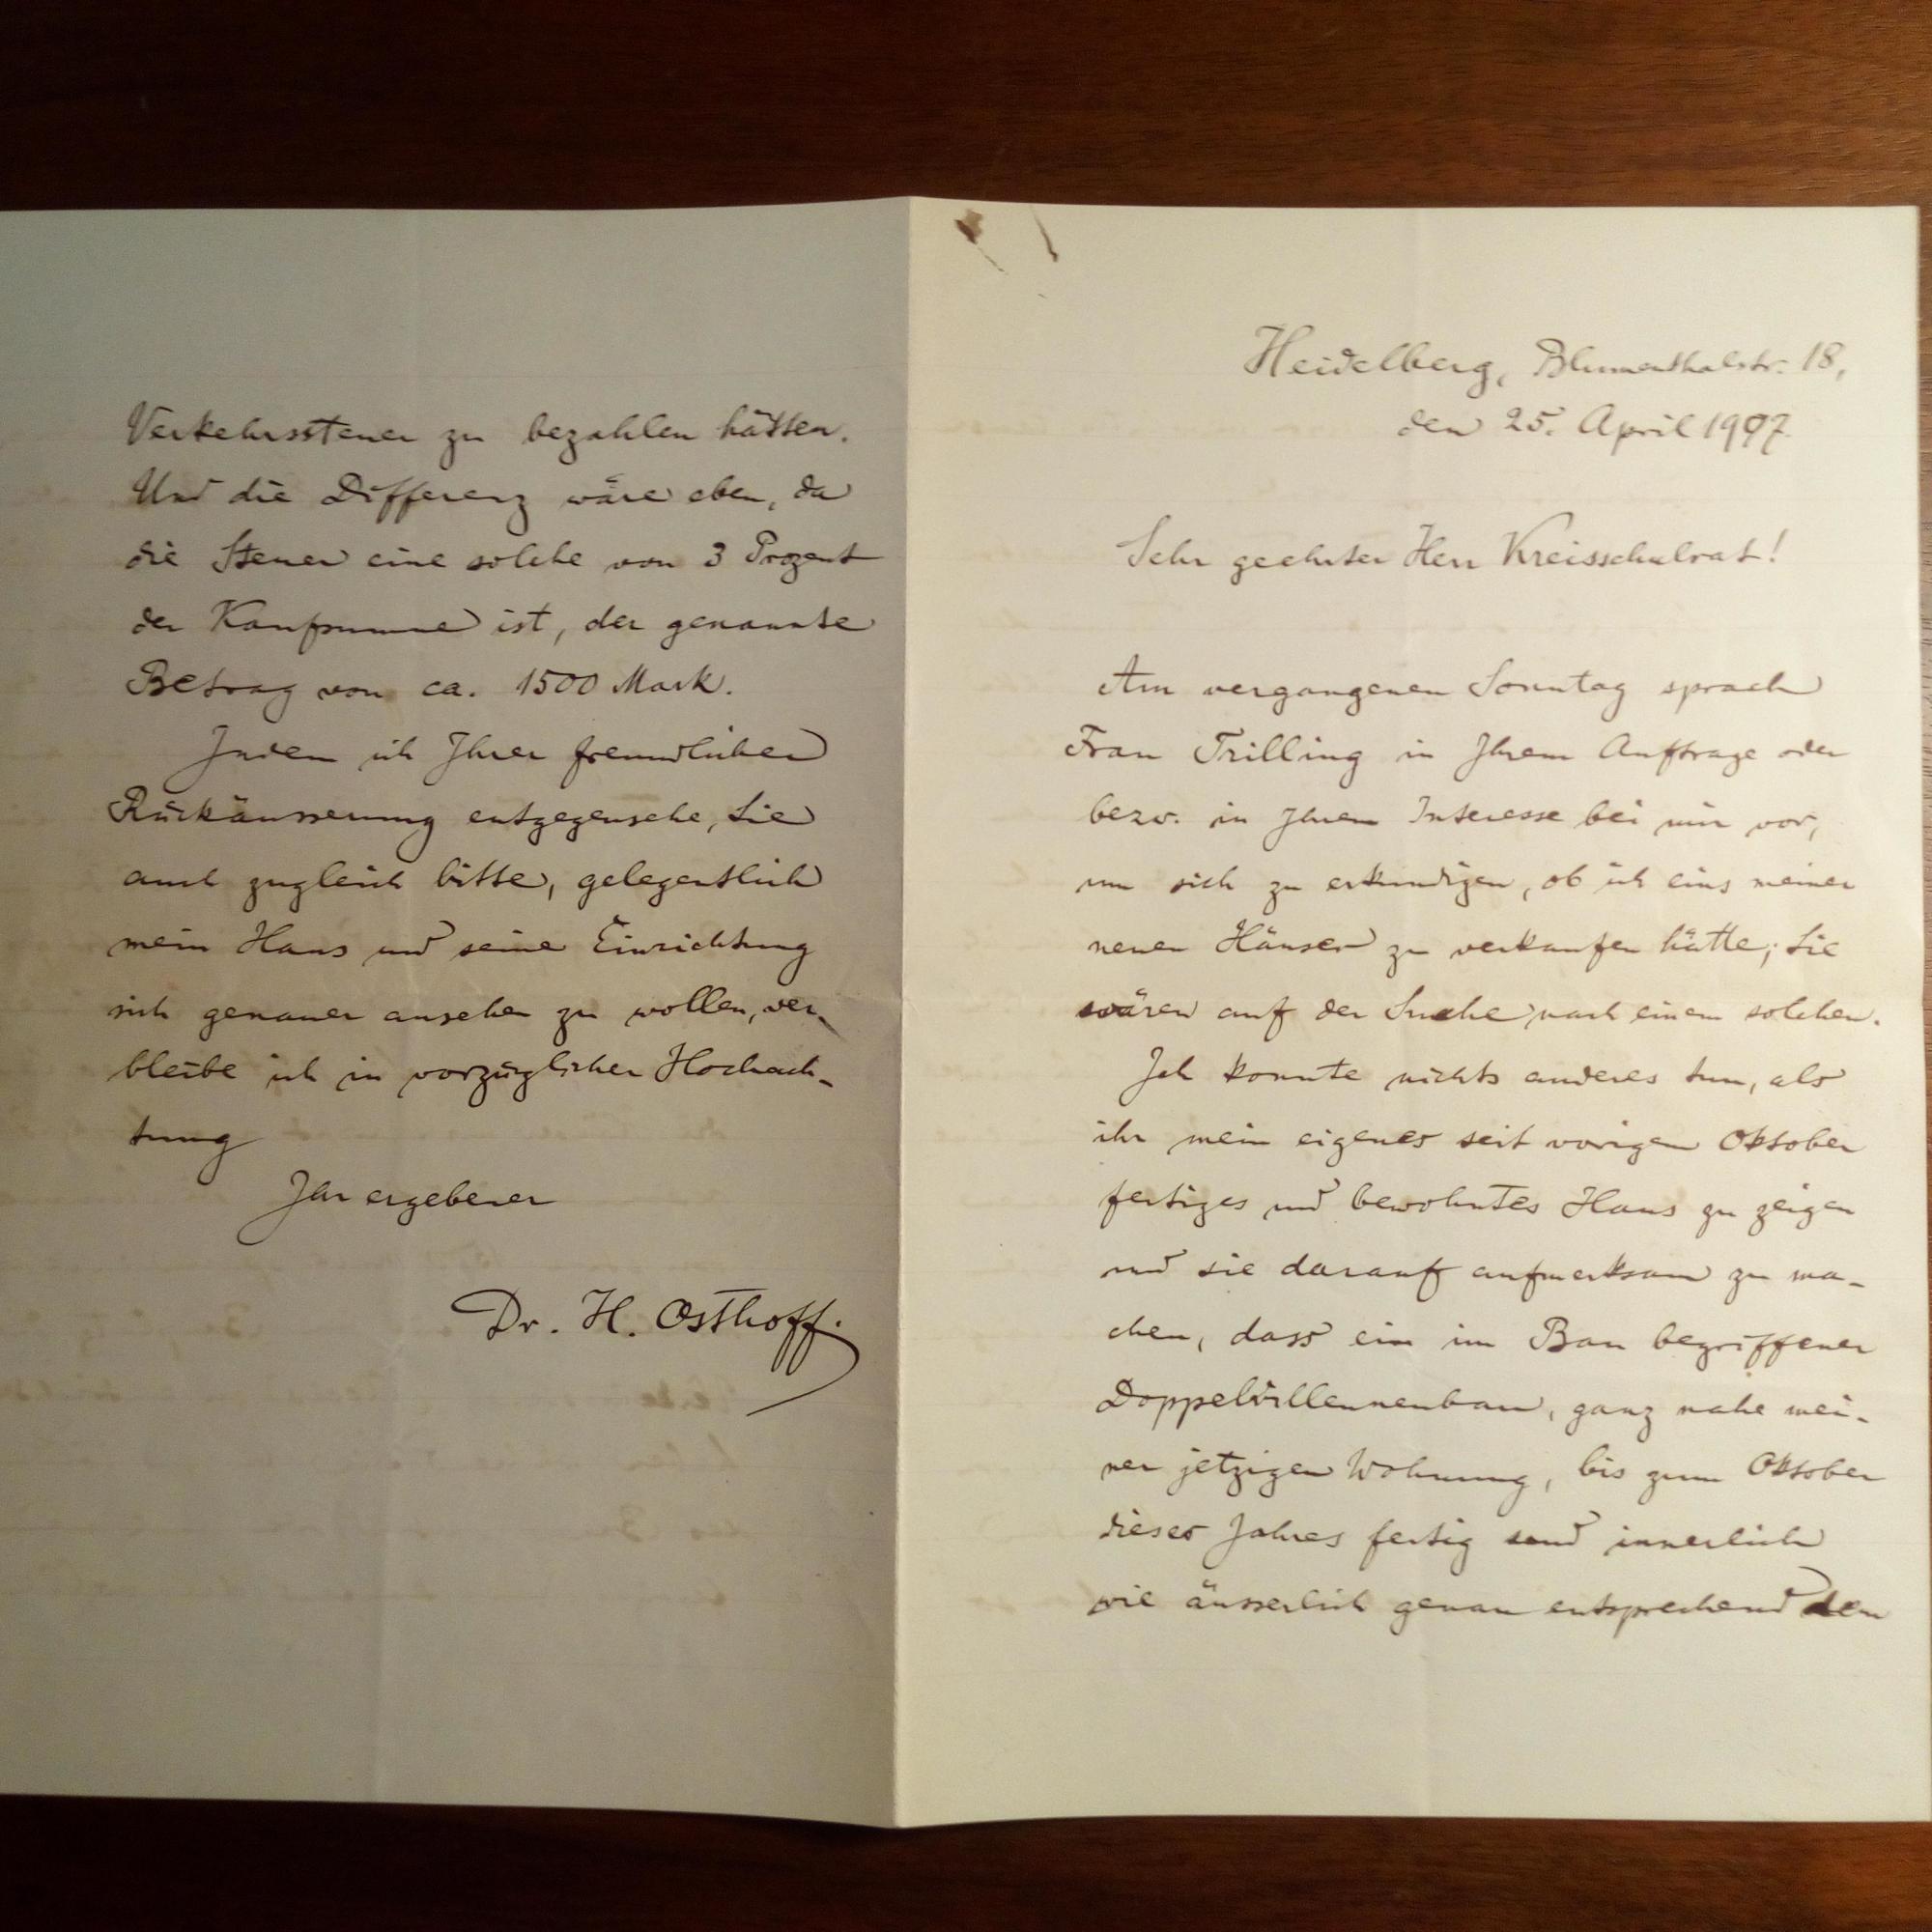 Heidelberg, Blumenthalstr. 18,
den 25. April 1907.
Sehr geehrter Herr Kreisschulrat!
Am vergangenen Sonntag sprach
Frau Trilling in Ihrem Auftrage oder
bezw. in Ihrem Interesse bei mir vor,
um sich zu erkundigen, ob ich eins meiner
neuen Häuser zu verkaufen hätte; Sie
wären auf der Suche nach einem solchen.
Ich konnte nichts anderes tun, als
ihr mein eigenes seit vorigem Oktober
fertiges und bewohntes Haus zu zeigen
und sie darauf aufmerksam zu ma-
chen, dass ein im Bau begriffener
Doppelvillenneubau, ganz nahe mei-
ner jetzigen Wohnung, bis zum Oktober
dieses Jahres fertig und innerlich
wie äusserlich genau entsprechend dem
Verkehrssteuer zu bezahlen hätten.
Und die Differenz wäre eben, da
die Steuer eine solche von 3 Prozent
der Kaufsumme ist, der genannte
Betrag von ca. 1500 Mark.
Indem ich Ihrer freundlichen
Rückäusserung entgegensehe, Sie
auch zugleich bitte, gelegentlich
mein Haus und seine Einrichtung
sich genauer ansehen zu wollen, ver-
bleibe ich in vorzüglicher Hochach-
tung
Ihr ergebener
Dr. H. Osthoff.